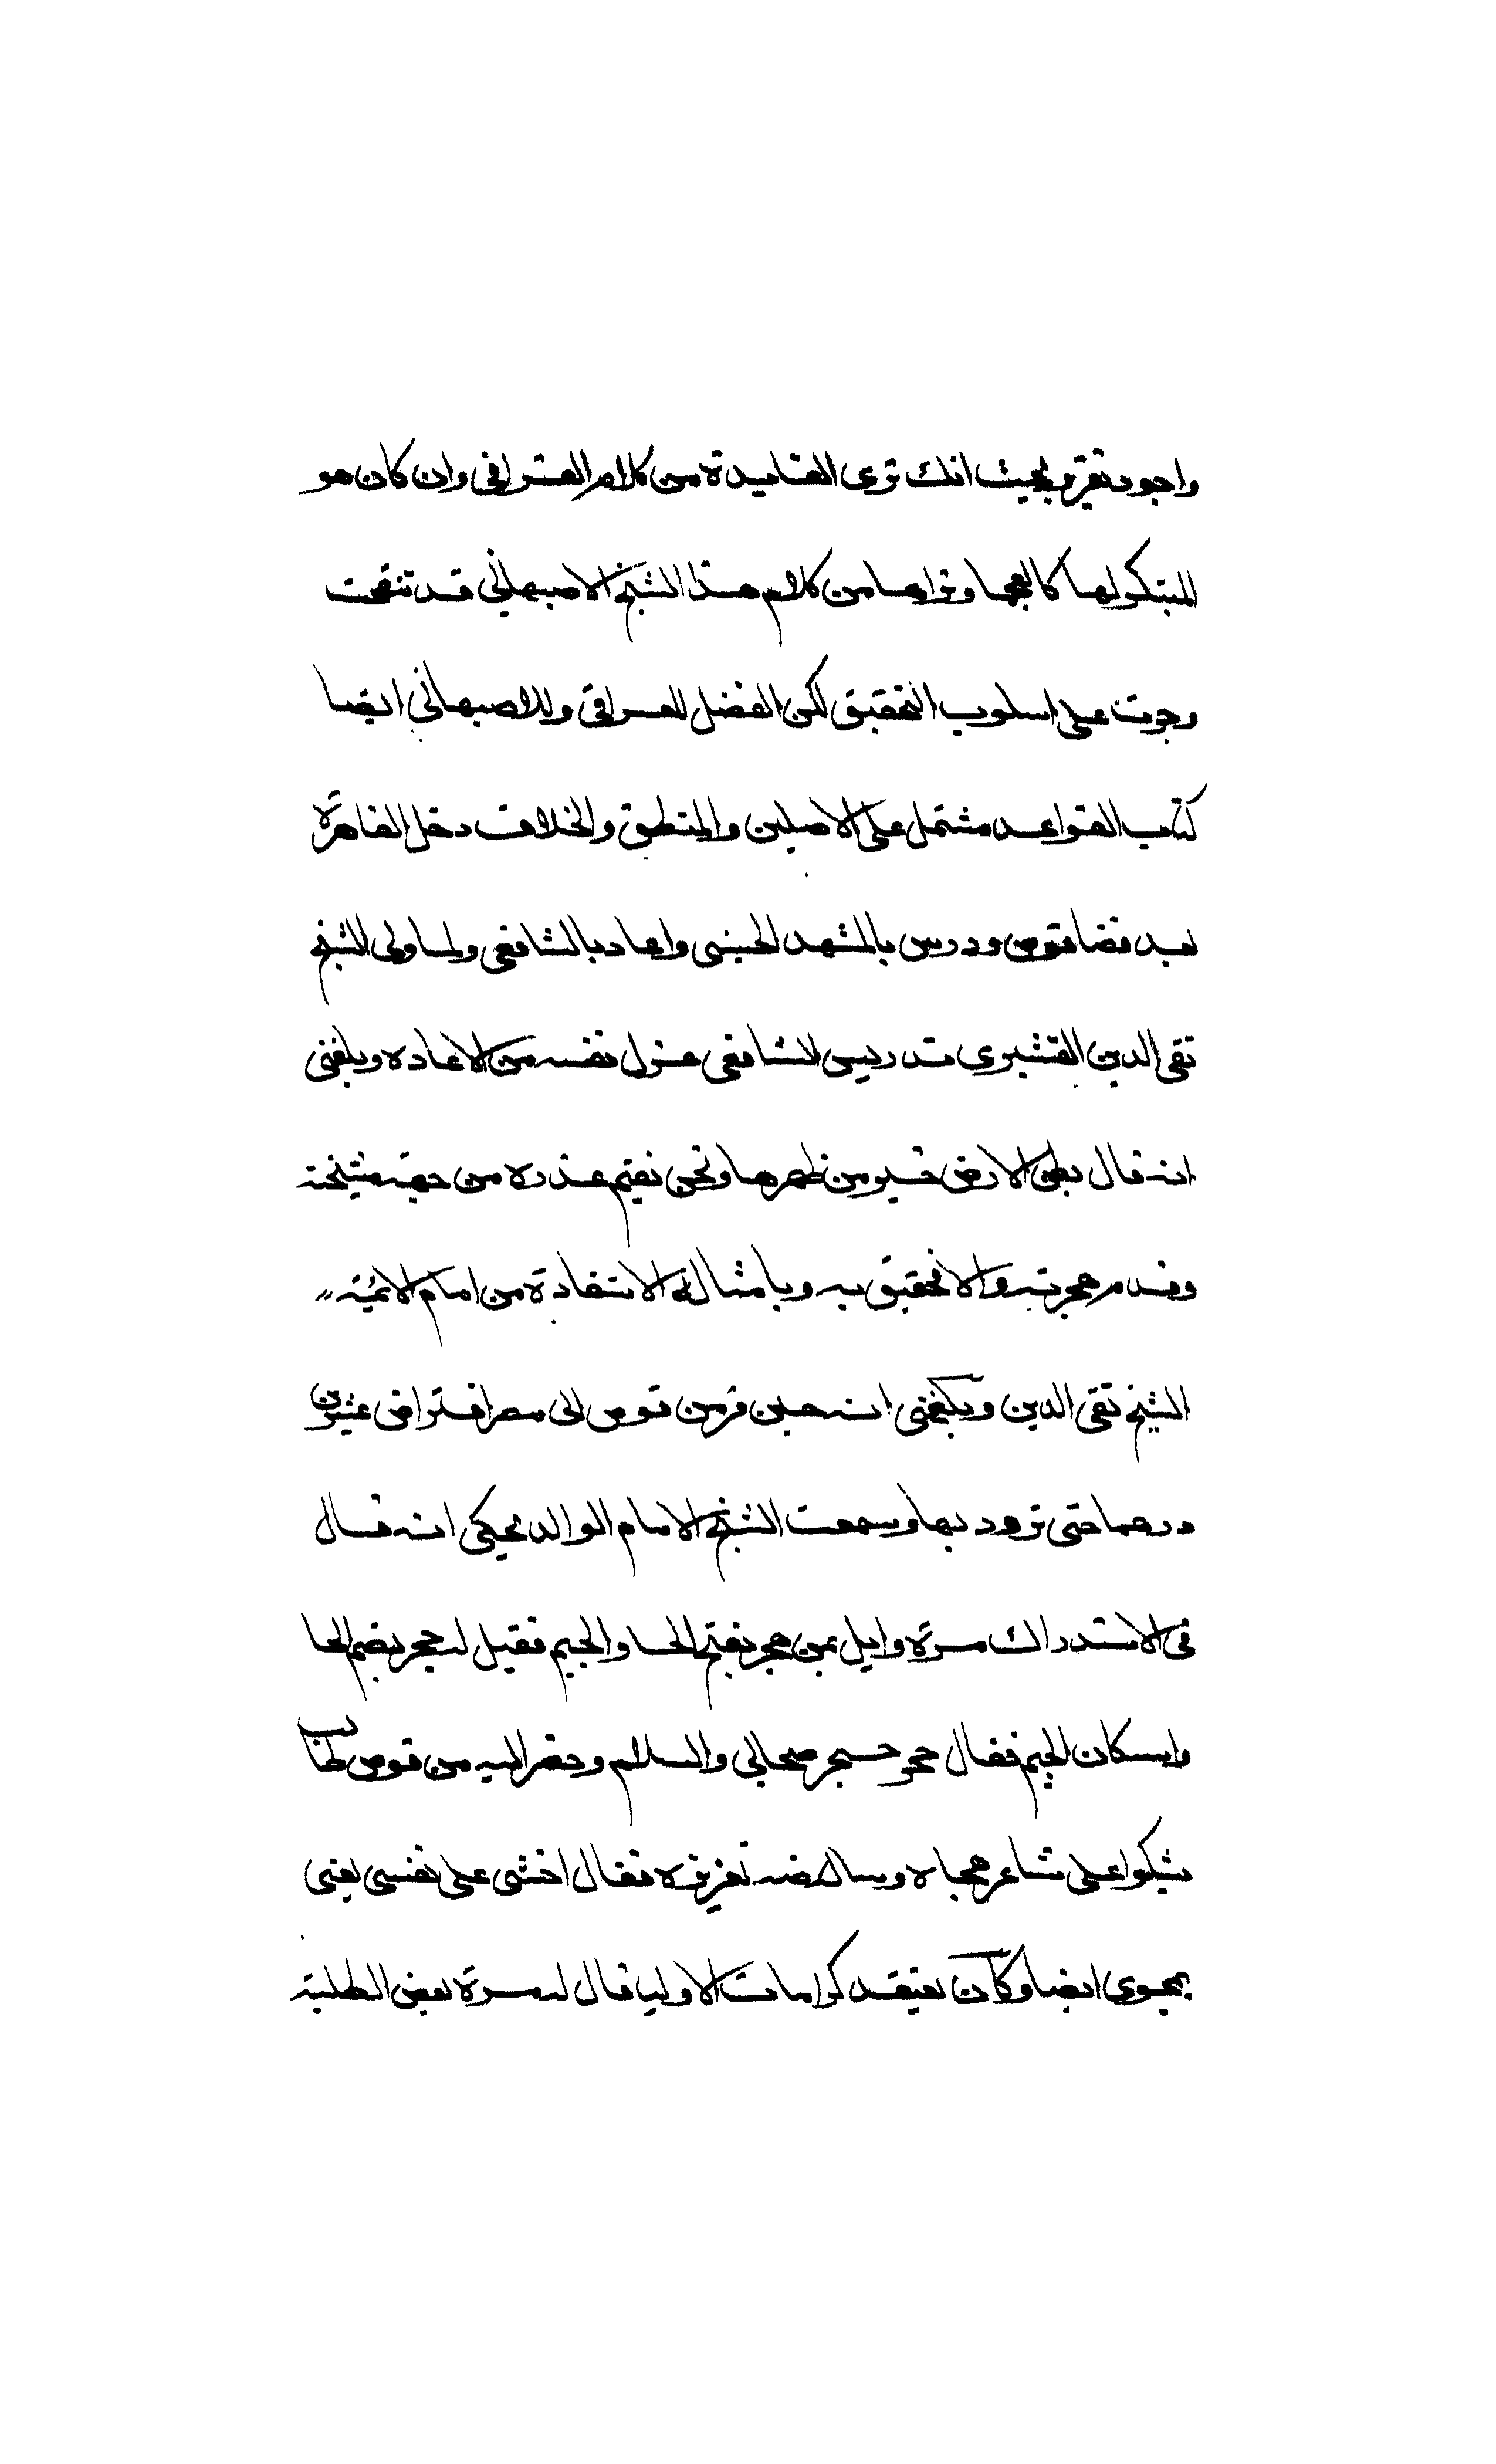 واجود تقرير بحيث انك ترى الفايدة من كلام القرافى وان كان هو
المبتكر لها كالعجما وتراها من كلام هذا الشيخ الاصبهانى قد تنقحت
وجرت على اسلوب التحقيق لكن الفضل للقرافى وللاصبهانى ايضا
كتاب القواعد مشتمل على الاصلين والمنطق والخلاف دخل القاهرة
بعد قضا قوص ودرس بالمشهد الحسينى واعاد بالشافعى ولما ولى الشيخ
تقى الدين القشيرى تدريس الشافعى عزل نفسه من الاعاده وبلغنى
انه قال بطن الارض خير من ظهرها ونحن نقيم عذره من جهة مشيخته
وقدم هجرته والا فحقيق به وبامثاله الاستفادة من امام الائمة
الشيخ تقى الدين وبلغنى انه حين فر من قوص الى مصر اقترافى عشرين
درهما حتى تزود بها وسمعت الشيخ الامام الوالد يحكى انه قال
فى الاستدراك مرة وايل بن حجر بفتح الحا والجيم فقيل له حجر بضم الحا
واسكان الجيم فقال حجر حجر صحابى والسلام وحضر اليه من قوص
يشكوا على شاعر هجاه وساله تعزيره فقال اخشى على نفسى يعنى
يهجوى ايضا وكان يعتقد كرامات الاوليا قال له مرة بعض الطلبة